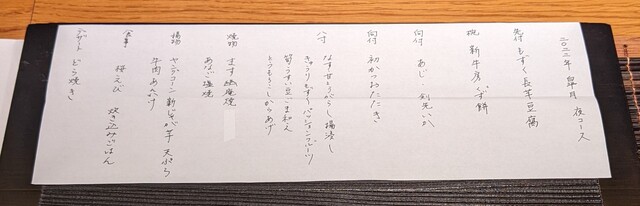 二〇二二年 皐月 夜コース
先付 もずく長芋豆腐
椀 新牛蒡くず餅
向付 あじ 剣先いか
向付 初かつおたたき
八寸 なす甘とうがらし揚浸し
きゅうりもずくパッションフルーツ
筍うすい豆ごま和え
とうもろこしからあげ
焼物 ます幽庵焼
あなご塩焼
揚物 ヤングコーン 新じゃが芋 天ぷら
牛肉あんかけ
食事 桜えび 炊き込みごはん
デザート どら焼き